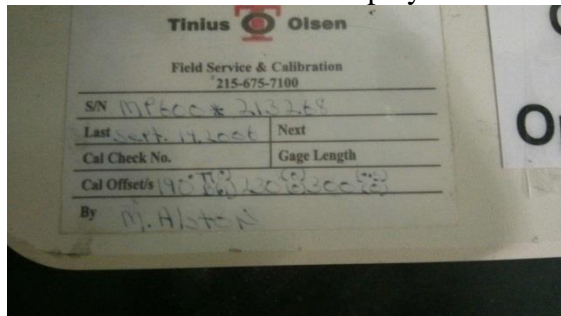 Tinius Olsen
Field Service & Calibration
215-675-7100
S/N MP600* 213268
Last Sept. 19, 2006 Next
Cal Check No. Gage Length
Cal Offset/s 190°
By M. Alston